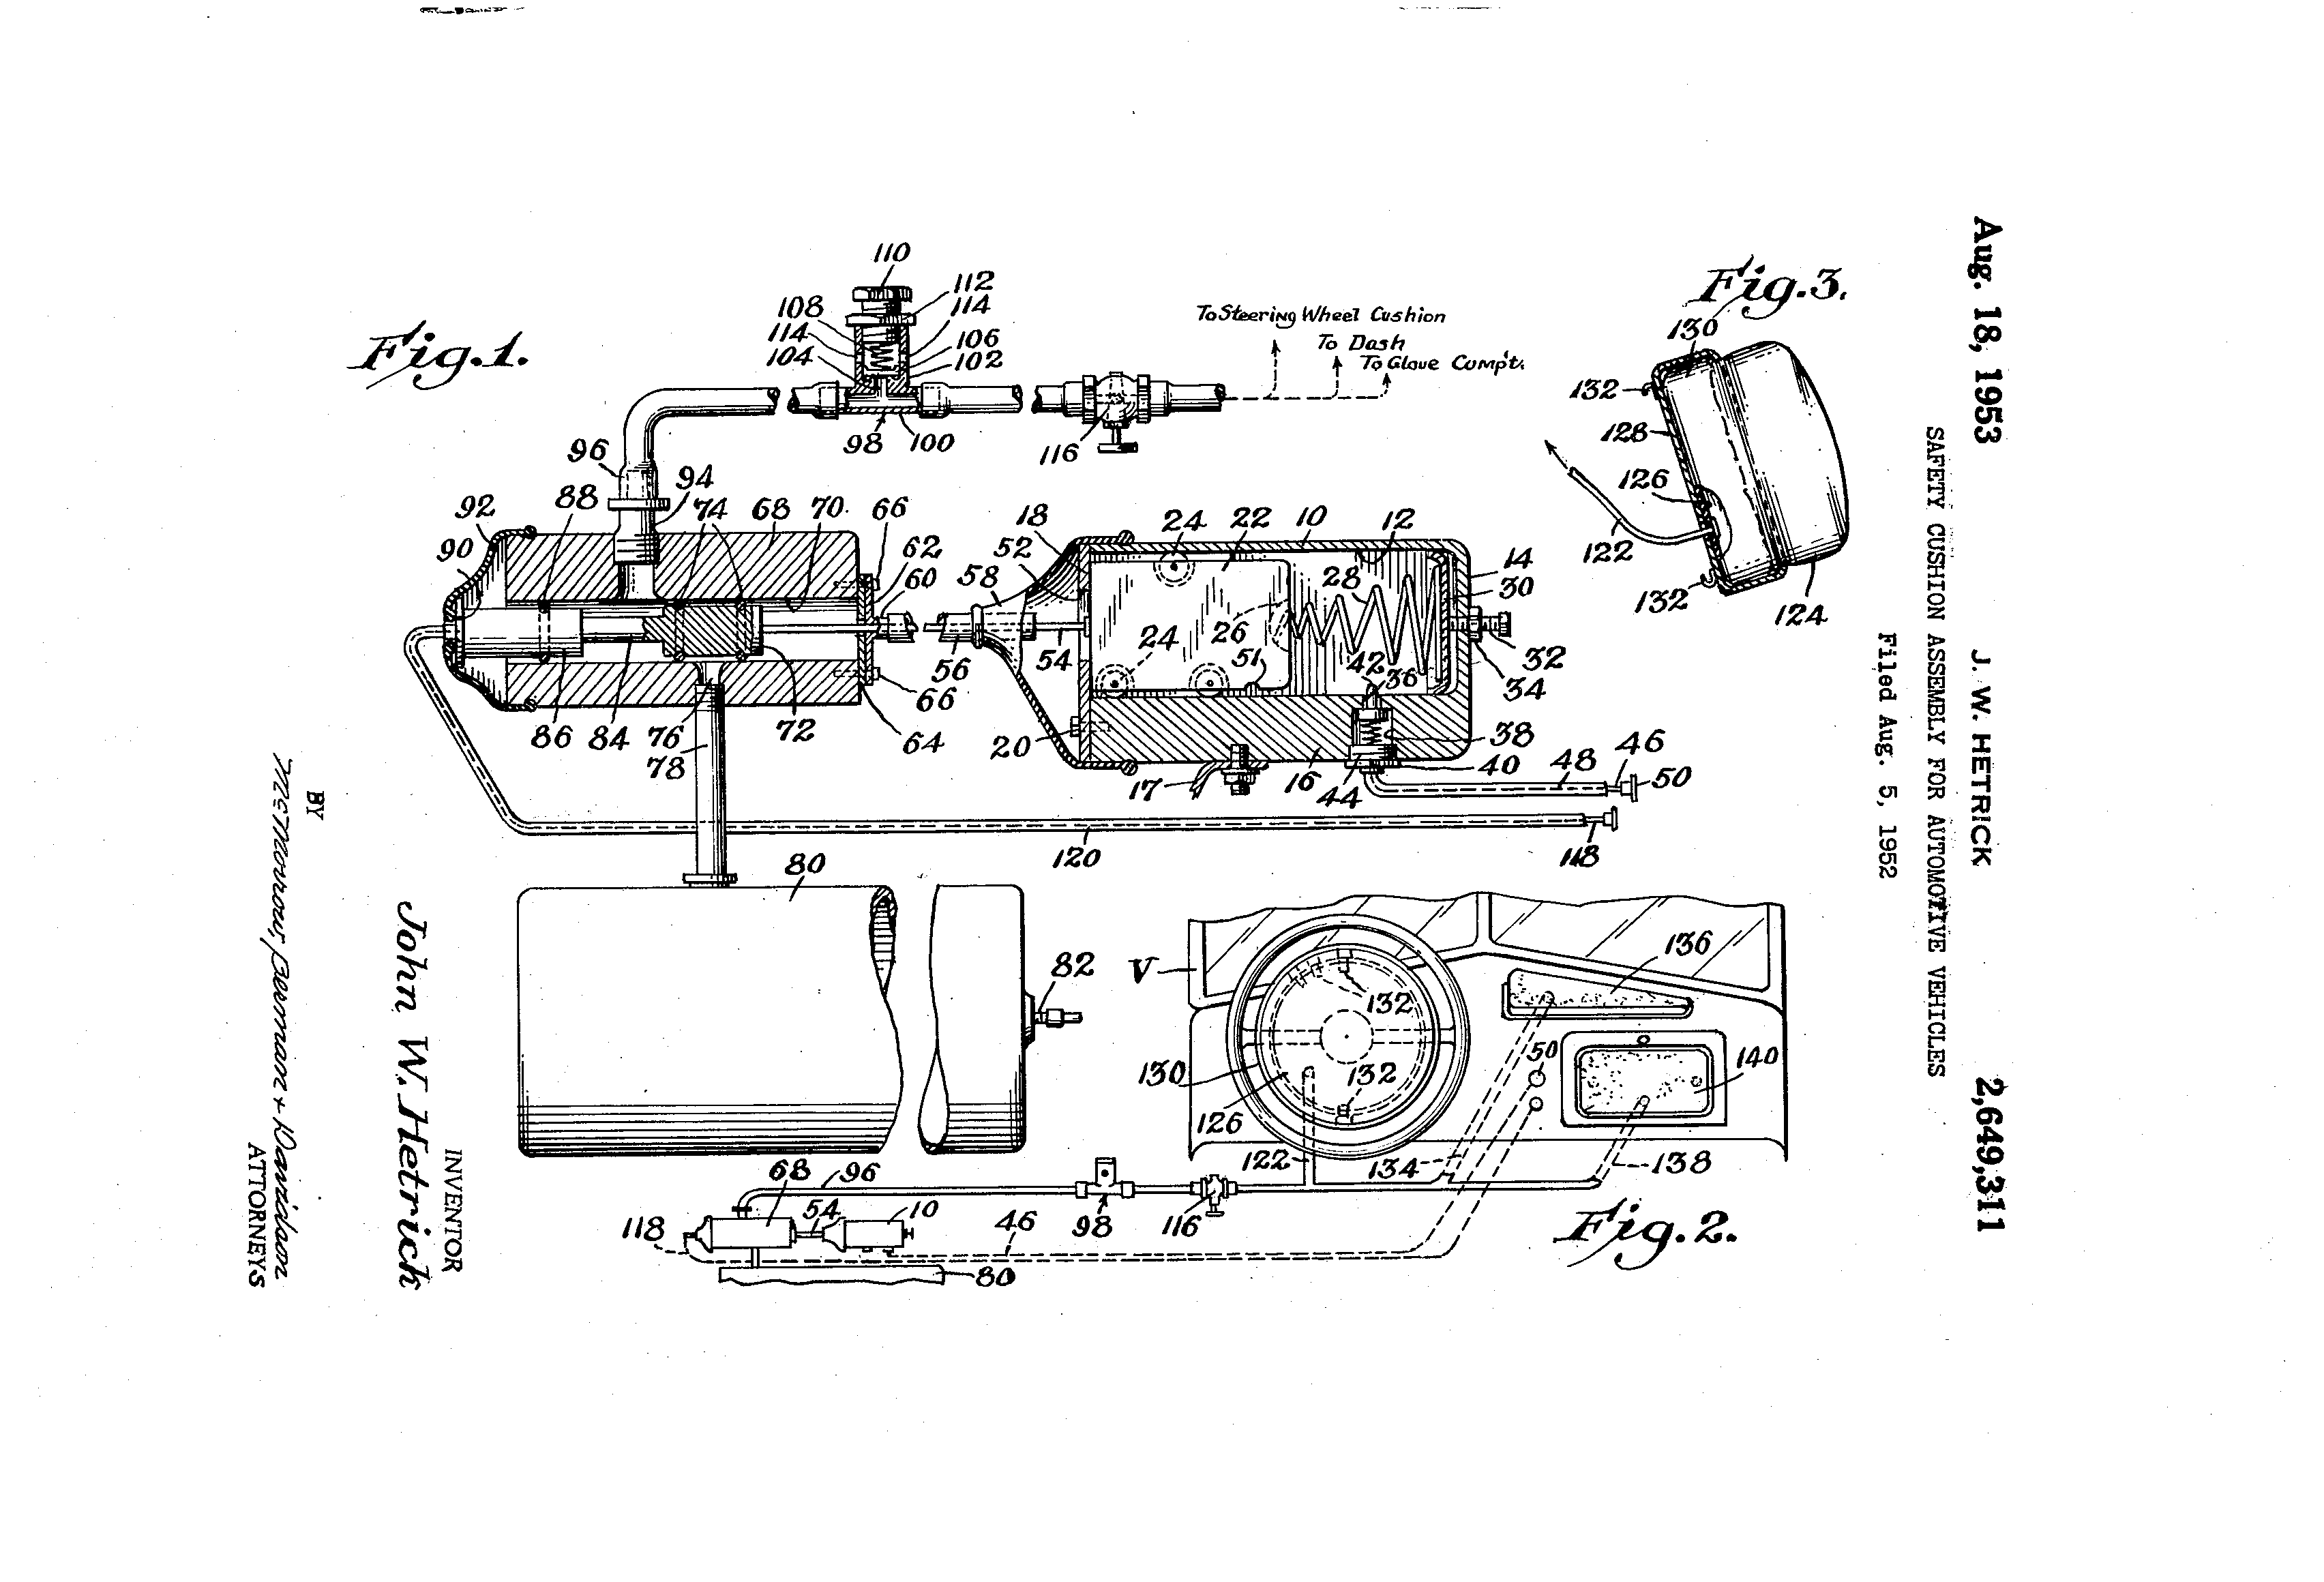 Aug. 18, 1953
J. W. HETRICK
2,649,311
SAFETY CUSHION ASSEMBLY FOR AUTOMOTIVE VEHICLES
Filed Aug. 5, 1952
Fig.1.
110
112
108
114
114
106
104
102
98
100
116
To Steering Wheel Cushion
To Dash
To Glove Comp't.
96
94
92
88
74
68
70
66
90
62
60
58
52
18
24
22
10
12
14
28
30
26
24
51
42
36
32
34
56
54
86
84
76
78
72
64
66
20
17
16
44
38
40
48
46
50
120
118
80
82
Fig.3.
130
132
128
126
122
132
124
Fig.2.
V
136
132
50
140
130
132
126
122
134
138
68
96
118
54
10
46
98
116
80
INVENTOR
John W. Hetrick
BY
ATTORNEYS